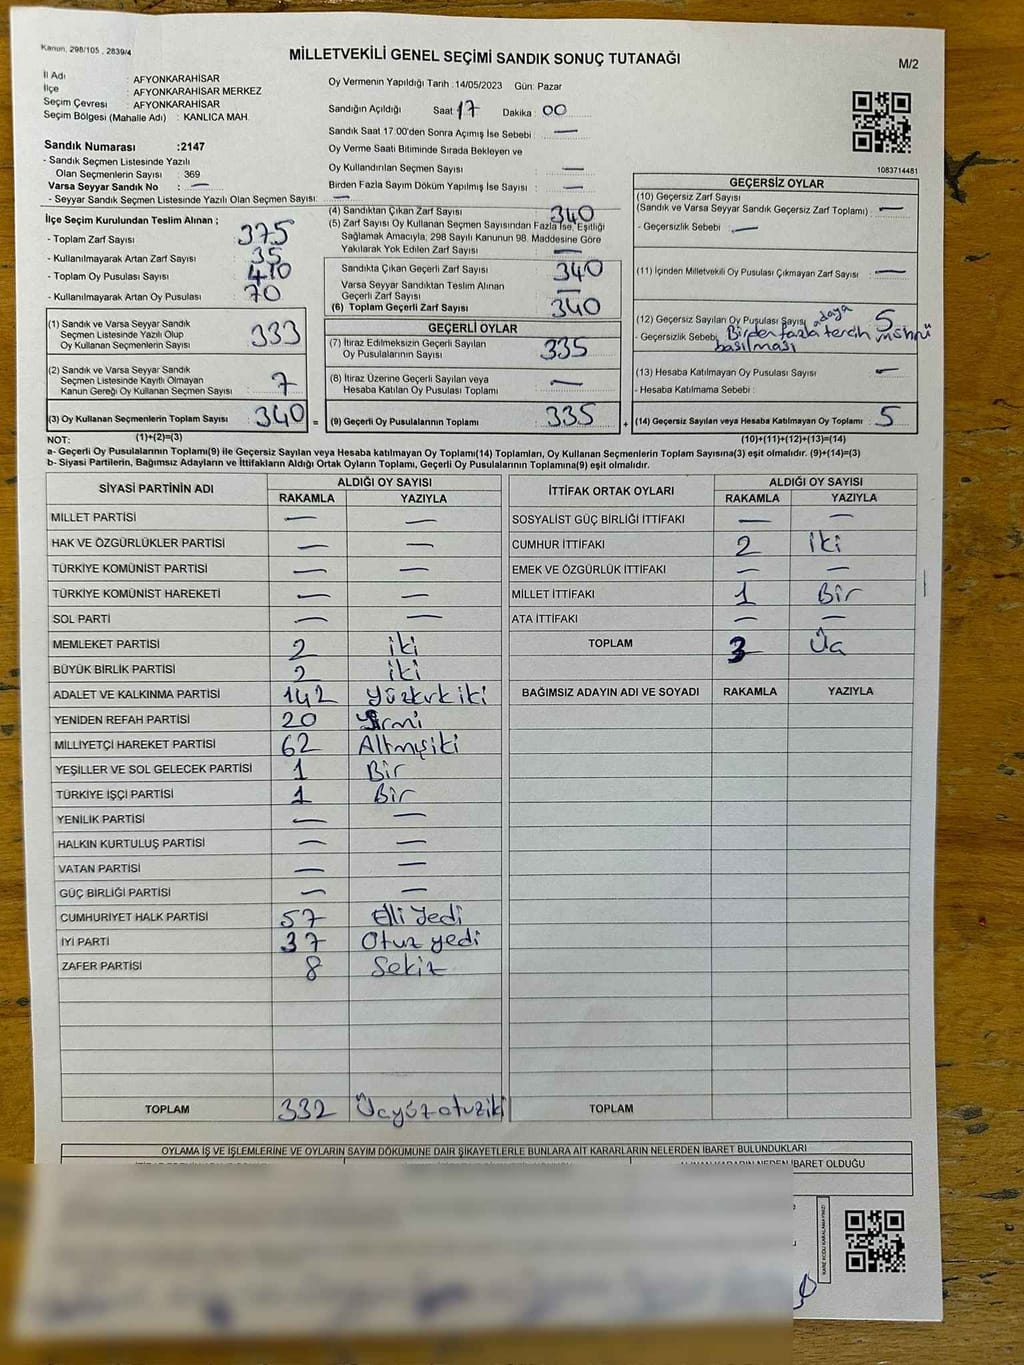 Kanun, 298/105 , 2839/4
MİLLETVEKİLİ GENEL SEÇİMİ SANDIK SONUÇ TUTANAĞI
M/2
İl Adı : AFYONKARAHİSAR
İlçe : AFYONKARAHİSAR MERKEZ
Seçim Çevresi : AFYONKARAHİSAR
Seçim Bölgesi (Mahalle Adı) : KANLICA MAH.
Sandık Numarası :2147
- Sandık Seçmen Listesinde Yazılı
Olan Seçmenlerin Sayısı : 369
Varsa Seyyar Sandık No : —
- Seyyar Sandık Seçmen Listesinde Yazılı Olan Seçmen Sayısı: —
Oy Vermenin Yapıldığı Tarih :14/05/2023 Gün: Pazar
Sandığın Açıldığı Saat 17 Dakika : 00
Sandık Saat 17:00'den Sonra Açımış İse Sebebi : —
Oy Verme Saati Bitiminde Sırada Bekleyen ve
Oy Kullandırılan Seçmen Sayısı : —
Birden Fazla Sayım Döküm Yapılmış İse Sayısı : —
1083714481
İlçe Seçim Kurulundan Teslim Alınan ;
- Toplam Zarf Sayısı : 375
- Kullanılmayarak Artan Zarf Sayısı : 35
- Toplam Oy Pusulası Sayısı : 410
- Kullanılmayarak Artan Oy Pusulası : 70
(1) Sandık ve Varsa Seyyar Sandık
Seçmen Listesinde Yazılı Olup
Oy Kullanan Seçmenlerin Sayısı 333
(2) Sandık ve Varsa Seyyar Sandık
Seçmen Listesinde Kayıtlı Olmayan
Kanun Gereği Oy Kullanan Seçmen Sayısı 7
(3) Oy Kullanan Seçmenlerin Toplam Sayısı 340 =
(1)+(2)=(3)
(4) Sandıktan Çıkan Zarf Sayısı : 340
(5) Zarf Sayısı Oy Kullanan Seçmen Sayısından Fazla İse, Eşitliği
Sağlamak Amacıyla, 298 Sayılı Kanunun 98. Maddesine Göre
Yakılarak Yok Edilen Zarf Sayısı : —
Sandıkta Çıkan Geçerli Zarf Sayısı : 340
Varsa Seyyar Sandıktan Teslim Alınan
Geçerli Zarf Sayısı : —
(6) Toplam Geçerli Zarf Sayısı : 340
GEÇERLİ OYLAR
(7) İtiraz Edilmeksizin Geçerli Sayılan
Oy Pusulalarının Sayısı : 335
(8) İtiraz Üzerine Geçerli Sayılan veya
Hesaba Katılan Oy Pusulası Toplamı : —
(9) Geçerli Oy Pusulalarının Toplamı : 335 +
GEÇERSİZ OYLAR
(10) Geçersiz Zarf Sayısı
(Sandık ve Varsa Seyyar Sandık Geçersiz Zarf Toplamı) : —
- Geçersizlik Sebebi : —
(11) İçinden Milletvekili Oy Pusulası Çıkmayan Zarf Sayısı : —
(12) Geçersiz Sayılan Oy Pusulası Sayısı : 5
- Geçersizlik Sebebi : Birden fazla adaya tercih mührü
basılması
(13) Hesaba Katılmayan Oy Pusulası Sayısı : —
- Hesaba Katılmama Sebebi :
(14) Geçersiz Sayılan veya Hesaba Katılmayan Oy Toplamı : 5
(10)+(11)+(12)+(13)=(14)
NOT:
a- Geçerli Oy Pusulalarının Toplamı(9) ile Geçersiz Sayılan veya Hesaba katılmayan Oy Toplamı(14) Toplamları, Oy Kullanan Seçmenlerin Toplam Sayısına(3) eşit olmalıdır. (9)+(14)=(3)
b- Siyasi Partilerin, Bağımsız Adayların ve İttifakların Aldığı Ortak Oyların Toplamı, Geçerli Oy Pusulalarının Toplamına(9) eşit olmalıdır.
SİYASİ PARTİNİN ADI ALDIĞI OY SAYISI
RAKAMLA YAZIYLA
MİLLET PARTİSİ — —
HAK VE ÖZGÜRLÜKLER PARTİSİ — —
TÜRKİYE KOMÜNİST PARTİSİ — —
TÜRKİYE KOMÜNİST HAREKETİ — —
SOL PARTİ — —
MEMLEKET PARTİSİ 2 iki
BÜYÜK BİRLİK PARTİSİ 2 iki
ADALET VE KALKINMA PARTİSİ 142 yüzkırkiki
YENİDEN REFAH PARTİSİ 20 yirmi
MİLLİYETÇİ HAREKET PARTİSİ 62 Altmışiki
YEŞİLLER VE SOL GELECEK PARTİSİ 1 Bir
TÜRKİYE İŞÇİ PARTİSİ 1 Bir
YENİLİK PARTİSİ — —
HALKIN KURTULUŞ PARTİSİ — —
VATAN PARTİSİ — —
GÜÇ BİRLİĞİ PARTİSİ — —
CUMHURİYET HALK PARTİSİ 57 Elli yedi
İYİ PARTİ 37 Otuz yedi
ZAFER PARTİSİ 8 Sekiz
TOPLAM 332 Üçyüzotuziki
İTTİFAK ORTAK OYLARI ALDIĞI OY SAYISI
RAKAMLA YAZIYLA
SOSYALİST GÜÇ BİRLİĞİ İTTİFAKI — —
CUMHUR İTTİFAKI 2 iki
EMEK VE ÖZGÜRLÜK İTTİFAKI — —
MİLLET İTTİFAKI 1 Bir
ATA İTTİFAKI — —
TOPLAM 3 Üç
BAĞIMSIZ ADAYIN ADI VE SOYADI RAKAMLA YAZIYLA
TOPLAM
OYLAMA İŞ VE İŞLEMLERİNE VE OYLARIN SAYIM DÖKÜMÜNE DAİR ŞİKAYETLERLE BUNLARA AİT KARARLARIN NELERDEN İBARET BULUNDUKLARI
ALINAN KARARIN NEDEN İBARET OLDUĞU
KARE KODU KARALAMAYINIZ!